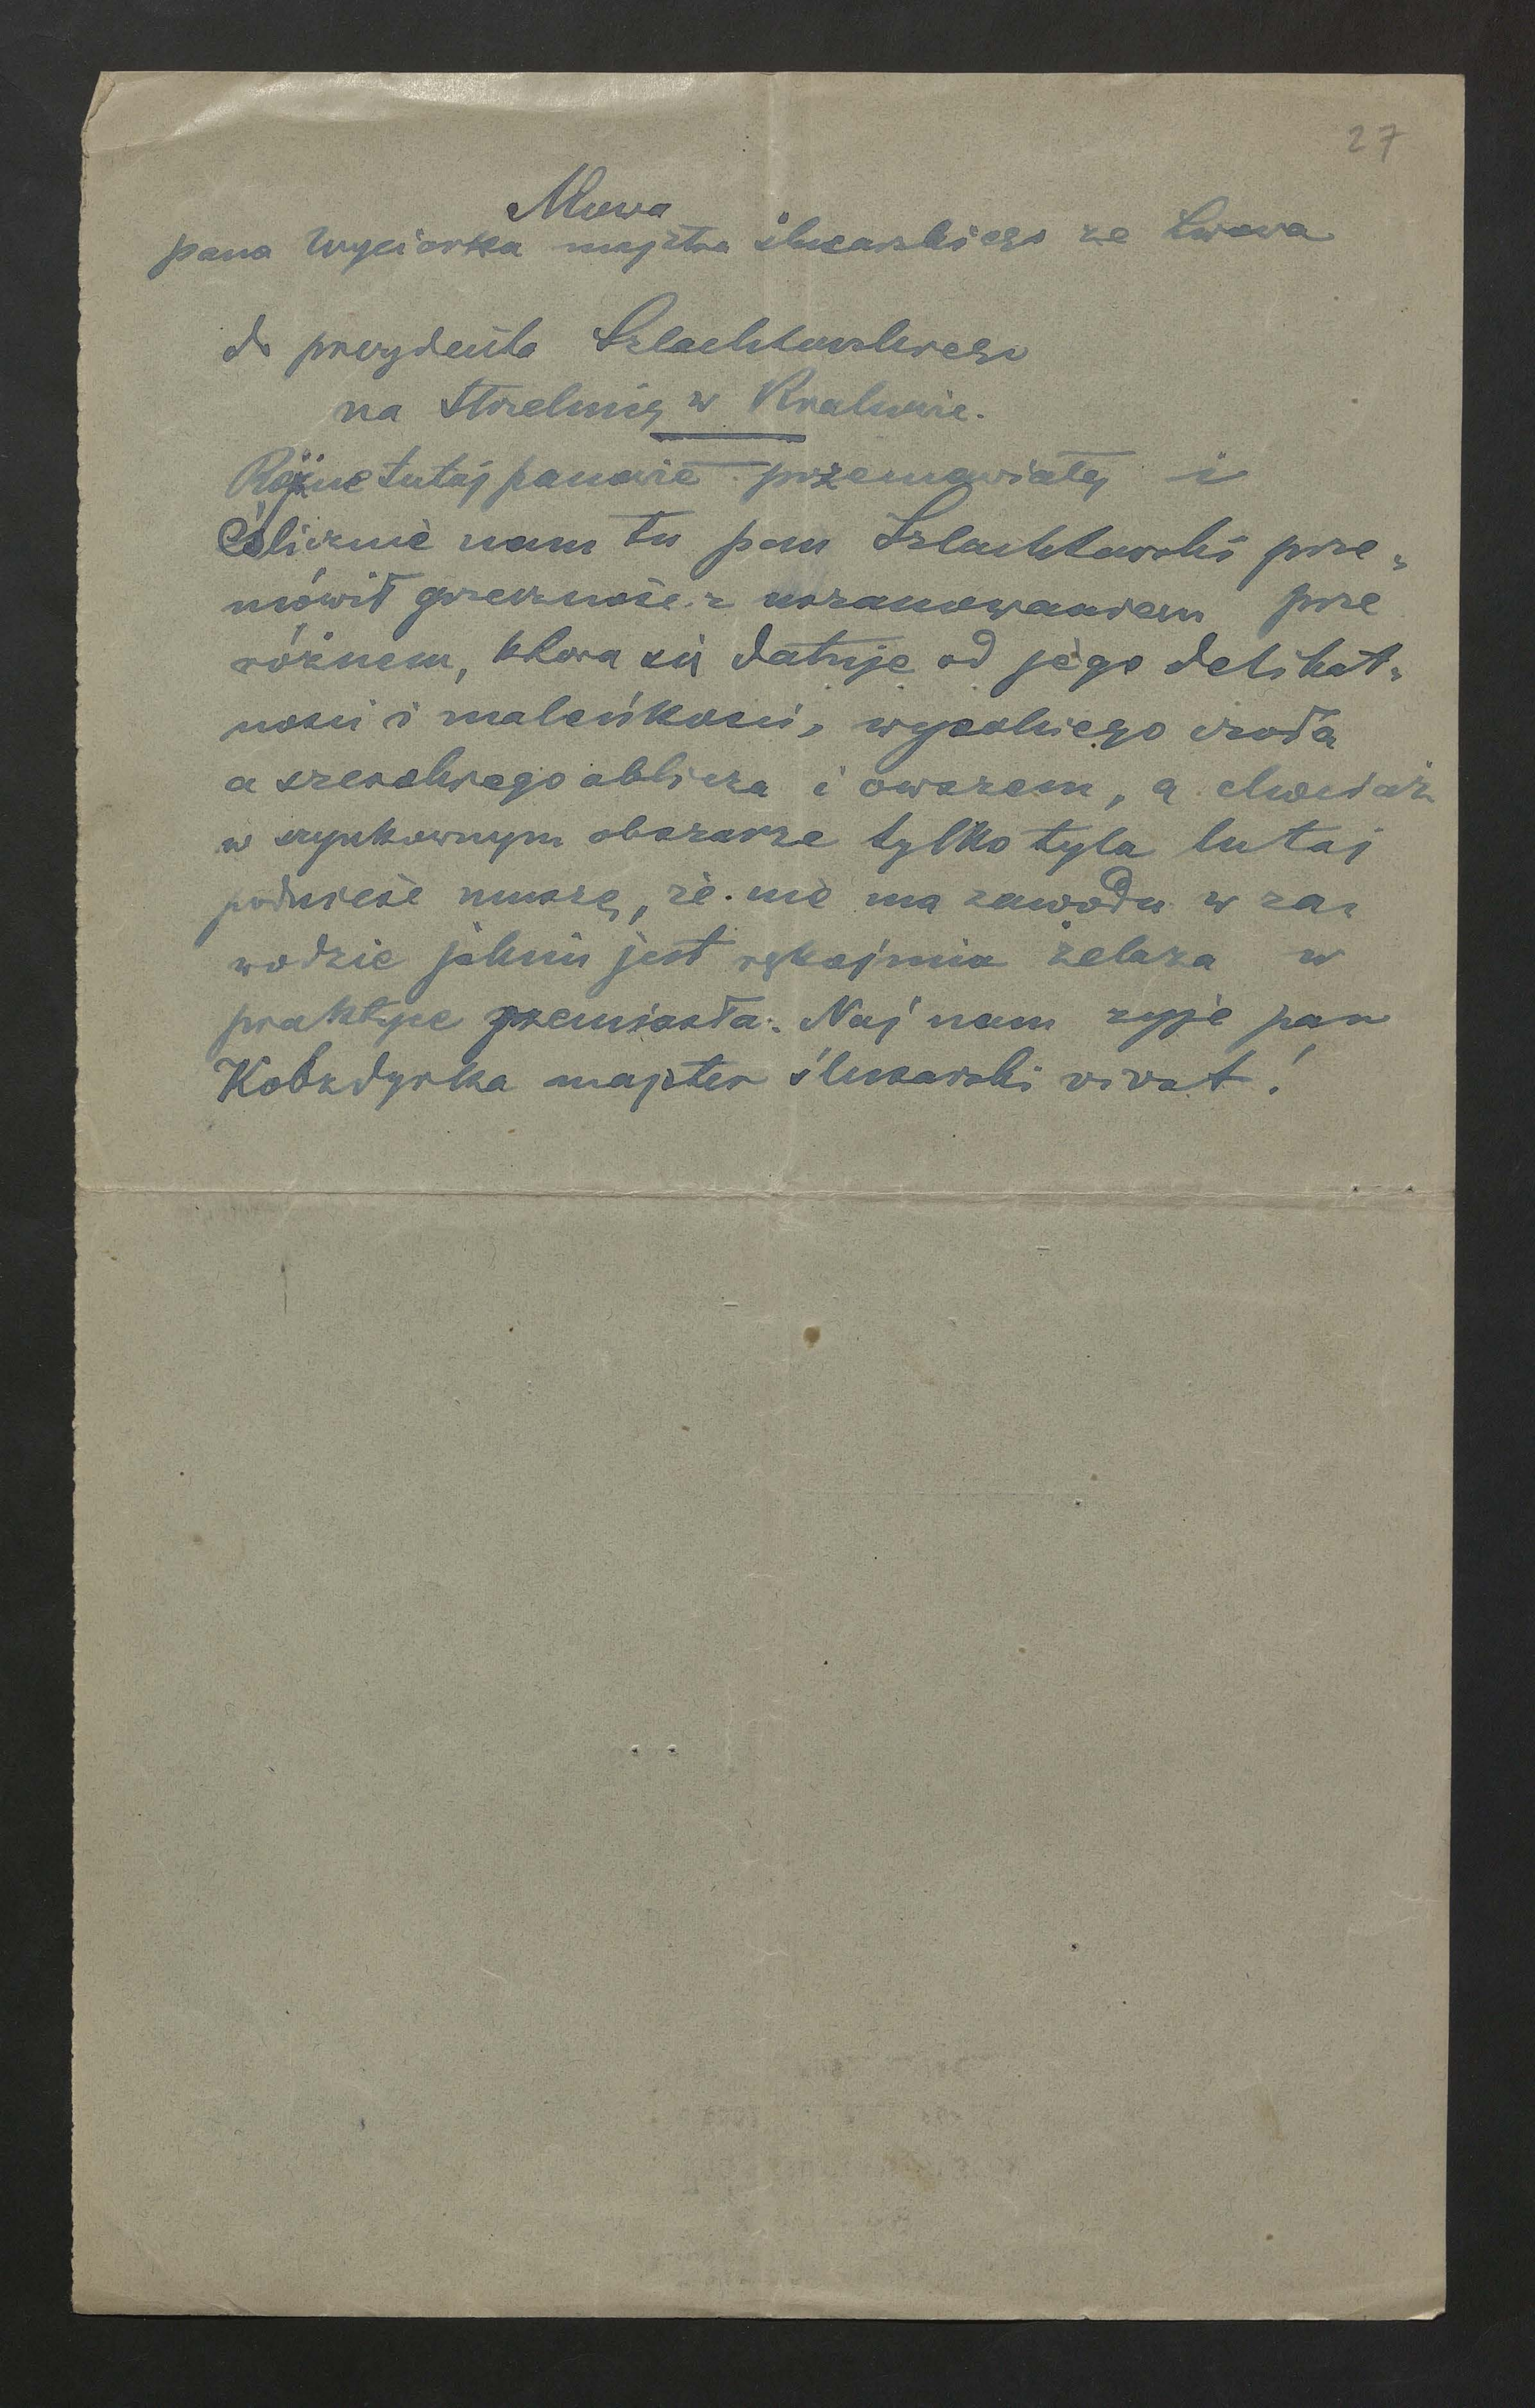 27
Mowa
pana Wyciorka majstra ślusarskiego ze Lwowa
do prezydenta Szlachtowskiego
na Strzelnicy w Krakowie.
Różne tutaj panowie przemawiały i
ślicznie nam tu pan Szlachtowski prze-
mówił grzeczność z uszanowaniem prze
różnem, która się datuje od jego delikat-
ności i maleńkości, wysokiego czoła
a szerokiego oblicza i owszem, a chociaż
w szynkownym obszarze tylko tyla tutaj
podnieść muszę, że nie ma zawodu w za-
wodzie jakim jest rękojmia żelaza w
praktyce rzemiosła. Naj nam żyje pan
Kobzdyrka majster ślusarski vivat!